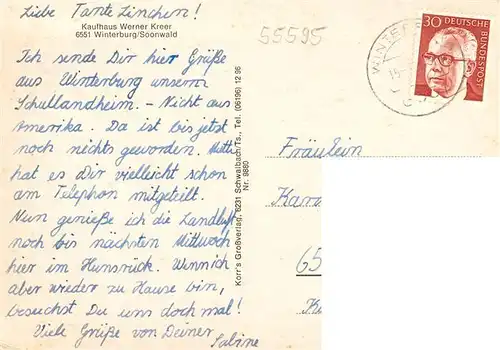 Liebe Tante Linchen!
Kaufhaus Werner Kreer
6551 Winterburg/Soonwald
Ich sende Dir hier Grüße
aus Winterburg unserm
Schullandheim. - Nicht aus
Amerika. Da ist bis jetzt
noch nichts geworden. Mutti
hat es Dir vielleicht schon
am Telephon mitgeteilt.
Nun genieße ich die Landluft
noch bis nächsten Mittwoch
hier im Hunsrück. Wenn ich
aber wieder zu Hause bin,
besuchst Du uns doch mal!
Viele Grüße von Deiner
Sabine
Korr's Großverlag, 6231 Schwalbach/Ts., Tel. (06196) 12 95
Nr. 8880
55595
30 DEUTSCHE
BUNDESPOST
WINTERB
Fräulein
Karo
65